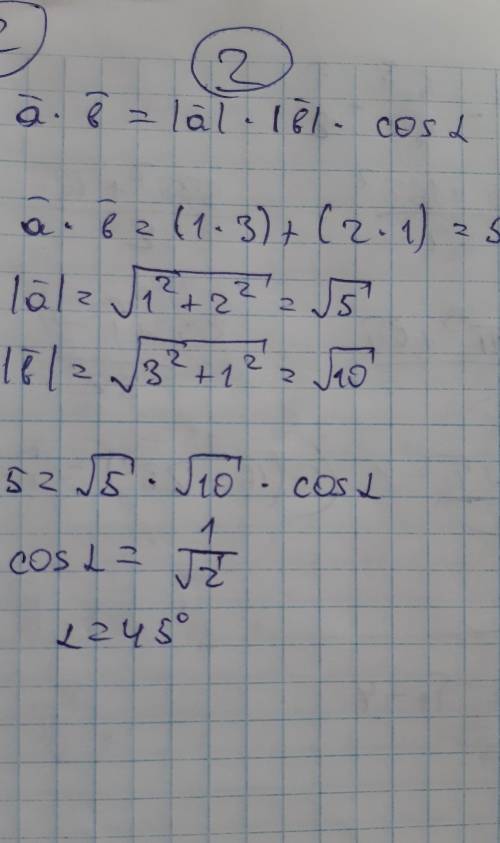 2
ā · b̄ = |ā| · |b̄| · cos α
ā · b̄ = (1 · 3) + (2 · 1) = 5
|ā| = √(1² + 2²) = √5
|b̄| = √(3² + 1²) = √10
5 = √5 · √10 · cos α
cos α = 1/√2
α = 45°